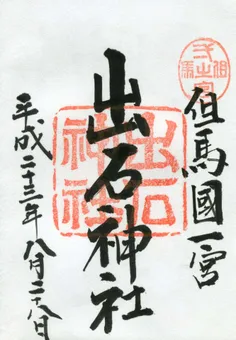 但馬國一宮
出石神社
平成二十三年八月二十八日
出石
神社